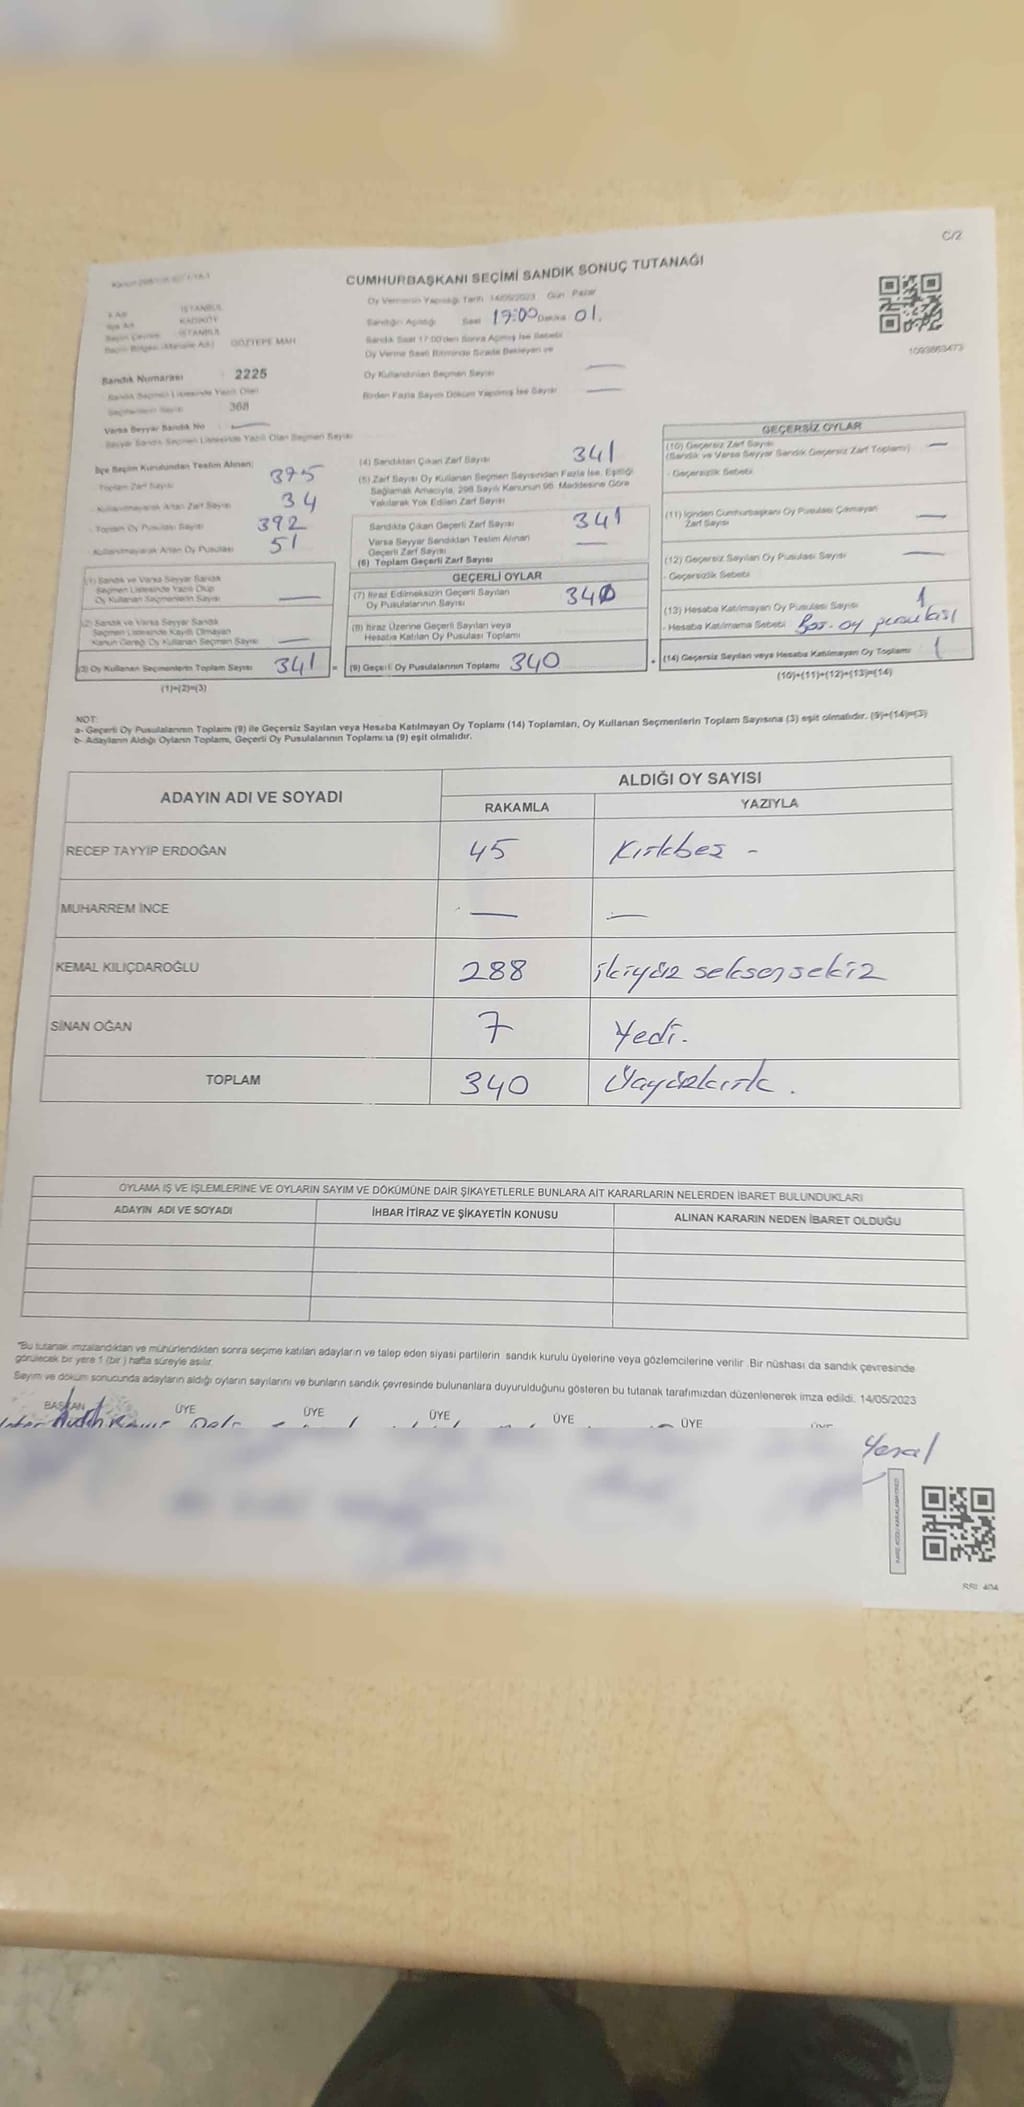 C/2
CUMHURBAŞKANI SEÇİMİ SANDIK SONUÇ TUTANAĞI
Oy Vermenin Yapıldığı Tarih 14/05/2023 Gün Pazar
Sandığın Açıldığı Saat 19:00 Dakika 01.
Sandık Saat 17:00'den Sonra Açılmış İse Sebebi
Oy Verme Saati Bitiminde Sırada Bekleyen ve
Oy Kullandırılan Seçmen Sayısı —
Birden Fazla Sayım Döküm Yapılmış İse Sayısı —
1093863473
İSTANBUL
KADIKÖY
İSTANBUL
GÖZTEPE MAH
Sandık Numarası 2225
Sandık Seçmen Listesinde Yazılı Olan
Seçmenlerin Sayısı 368
Varsa Seyyar Sandık No —
Seyyar Sandık Seçmen Listesinde Yazılı Olan Seçmen Sayısı
İlçe Seçim Kurulundan Teslim Alınan;
- Toplam Zarf Sayısı 375
- Kullanılmayarak Artan Zarf Sayısı 34
- Toplam Oy Pusulası Sayısı 392
- Kullanılmayarak Artan Oy Pusulası 51
(1) Sandık ve Varsa Seyyar Sandık
Seçmen Listesinde Yazılı Olup
Oy Kullanan Seçmenlerin Sayısı —
(2) Sandık ve Varsa Seyyar Sandık
Seçmen Listesinde Kayıtlı Olmayan
Kanun Gereği Oy Kullanan Seçmen Sayısı —
(3) Oy Kullanan Seçmenlerin Toplam Sayısı 341 =
(1)+(2)=(3)
(4) Sandıktan Çıkan Zarf Sayısı 341
(5) Zarf Sayısı Oy Kullanan Seçmen Sayısından Fazla İse, Eşitliği
Sağlamak Amacıyla, 298 Sayılı Kanunun 98. Maddesine Göre
Yakılarak Yok Edilen Zarf Sayısı
Sandıkta Çıkan Geçerli Zarf Sayısı 341
Varsa Seyyar Sandıktan Teslim Alınan
Geçerli Zarf Sayısı —
(6) Toplam Geçerli Zarf Sayısı
GEÇERLİ OYLAR
(7) İtiraz Edilmeksizin Geçerli Sayılan
Oy Pusulalarının Sayısı 340
(8) İtiraz Üzerine Geçerli Sayılan veya
Hesaba Katılan Oy Pusulası Toplamı
(9) Geçerli Oy Pusulalarının Toplamı 340 +
GEÇERSİZ OYLAR
(10) Geçersiz Zarf Sayısı —
(Sandık ve Varsa Seyyar Sandık Geçersiz Zarf Toplamı)
- Geçersizlik Sebebi
(11) İçinden Cumhurbaşkanı Oy Pusulası Çıkmayan
Zarf Sayısı —
(12) Geçersiz Sayılan Oy Pusulası Sayısı —
- Geçersizlik Sebebi
(13) Hesaba Katılmayan Oy Pusulası Sayısı 1
- Hesaba Katılmama Sebebi Boş oy pusulası
(14) Geçersiz Sayılan veya Hesaba Katılmayan Oy Toplamı 1
(10)+(11)+(12)+(13)=(14)
NOT:
a- Geçerli Oy Pusulalarının Toplamı (9) ile Geçersiz Sayılan veya Hesaba Katılmayan Oy Toplamı (14) Toplamları, Oy Kullanan Seçmenlerin Toplam Sayısına (3) eşit olmalıdır. (9)+(14)=(3)
b- Adayların Aldığı Oyların Toplamı, Geçerli Oy Pusulalarının Toplamına (9) eşit olmalıdır.
ADAYIN ADI VE SOYADI
ALDIĞI OY SAYISI
RAKAMLA YAZIYLA
RECEP TAYYİP ERDOĞAN 45 Kırkbeş -
MUHARREM İNCE — —
KEMAL KILIÇDAROĞLU 288 ikiyüz seksensekiz
SİNAN OĞAN 7 Yedi.
TOPLAM 340 Üçyüzkırk.
OYLAMA İŞ VE İŞLEMLERİNE VE OYLARIN SAYIM VE DÖKÜMÜNE DAİR ŞİKAYETLERLE BUNLARA AİT KARARLARIN NELERDEN İBARET BULUNDUKLARI
ADAYIN ADI VE SOYADI İHBAR İTİRAZ VE ŞİKAYETİN KONUSU ALINAN KARARIN NEDEN İBARET OLDUĞU
*Bu tutanak imzalandıktan ve mühürlendikten sonra seçime katılan adayların ve talep eden siyasi partilerin sandık kurulu üyelerine veya gözlemcilerine verilir. Bir nüshası da sandık çevresinde
görülecek bir yere 1 (bir) hafta süreyle asılır.
Sayım ve döküm sonucunda adayların aldığı oyların sayılarını ve bunların sandık çevresinde bulunanlara duyurulduğunu gösteren bu tutanak tarafımızdan düzenlenerek imza edildi. 14/05/2023
BAŞKAN ÜYE ÜYE ÜYE ÜYE ÜYE ÜYE